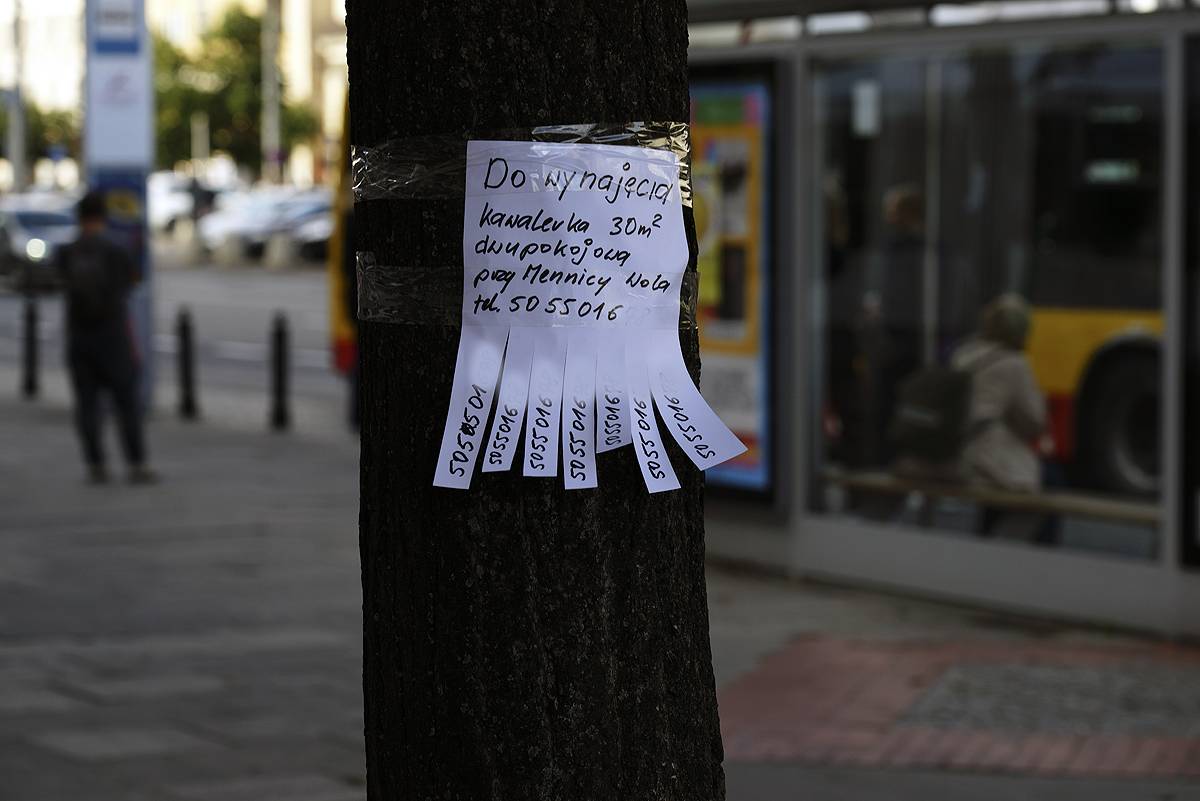 Do wynajęcia
kawalerka 30m²
dwupokojowa
przy Mennicy Wola
tel. 5055016
5050501
5055016
5055016
5055016
5055016
5055016
5055016